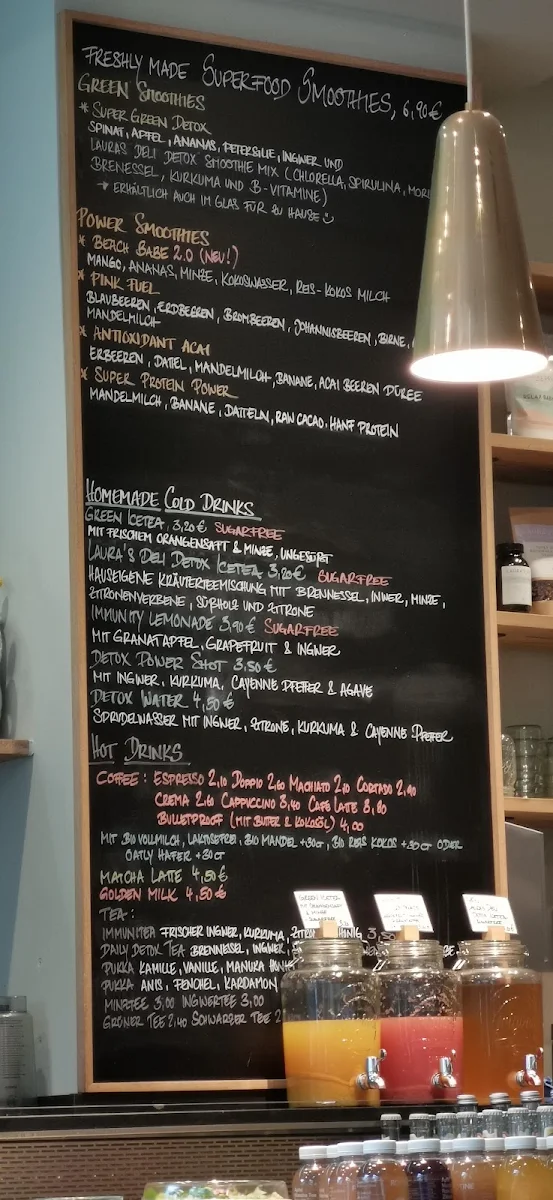 FRESHLY MADE SUPERFOOD SMOOTHIES, 6,90€
GREEN SMOOTHIES
* SUPER GREEN DETOX
SPINAT, APFEL, ANANAS, PETERSILIE, INGWER UND
LAURAS DELI DETOX SMOOTHIE MIX (CHLORELLA, SPIRULINA,
BRENESSEL, KURKUMA UND B-VITAMINE)
* ERHÄLTLICH AUCH IM GLAS FÜR ZU HAUSE
POWER SMOOTHIES
* BEACH BABE 2.0 (NEU!)
MANGO, ANANAS, MINZE, KOKOSWASSER, REIS-KOKOS MILCH
* PINK FUEL
BLAUBEEREN, ERDBEEREN, BROMBEEREN, JOHANNISBEEREN, BIRNE,
MANDELMILCH
* ANTIOXIDANT ACAI
ERBEEREN, DATTEL, MANDELMILCH, BANANE, ACAI BEEREN PÜREE
* SUPER PROTEIN POWER
MANDELMILCH, BANANE, DATTELN, RAW CACAO, HANF PROTEIN
HOMEMADE COLD DRINKS
GREEN ICETEA 3,20€ SUGARFREE
MIT FRISCHEM ORANGENSAFT & MINZE, UNGESÜßT
LAURA'S DELI DETOX ICETEA 3,20€ SUGARFREE
HAUSEIGENE KRÄUTERTEEMISCHUNG MIT BRENNESSEL, INWER, MINZE,
ZITRONENVERBENE, SÜßHOLZ UND ZITRONE
IMMUNITY LEMONADE 3,90€ SUGARFREE
MIT GRANATAPFEL, GRAPEFRUIT & INGWER
DETOX POWER SHOT 3,50€
MIT INGWER, KURKUMA, CAYENNE PFEFFER & AGAVE
DETOX WATER 4,50€
SPRUDELWASSER MIT INGWER, ZITRONE, KURKUMA & CAYENNE PFEFFER
HOT DRINKS
COFFEE: ESPRESSO 2,10 DOPPIO 2,60 MACHIATO 2,10 CORTADO 2,90
CREMA 2,60 CAPPUCCINO 3,40 CAFE LATE 3,80
BULLETPROOF (MIT BUTER & KOKOSÖL) 4,00
MIT BIO VOLLMILCH, LAKTOSEFREI, BIO MANDEL +30ct, BIO REIS KOKOS +30ct ODER
OATLY HAFER +30ct
MATCHA LATTE 4,50€
GOLDEN MILK 4,50€
TEA:
IMMUNITEA FRISCHER INGWER, KURKUMA, HONIG
DAILY DETOX TEA BRENNESSEL, INGWER,
PUKKA KAMILLE, VANILLE, MANUKA HONIG
PUKKA ANIS, FENCHEL, KARDAMON
MINZTEE 3,00 INGWERTEE 3,00
GRÜNER TEE 2,40 SCHWARZER TEE
GREEN ICETEA